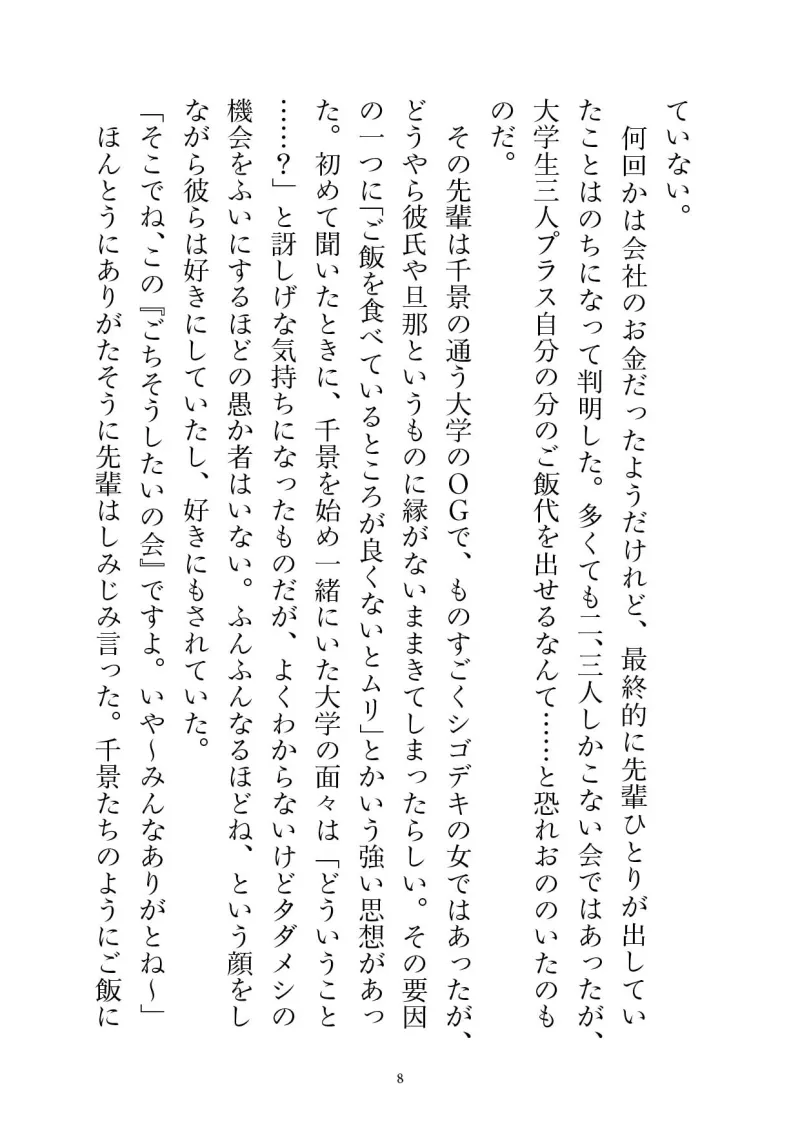 ていない。
　何回かは会社のお金だったようだけれど、最終的に先輩ひとりが出してい
たことはのちになって判明した。多くても二、三人しかこない会ではあったが、
大学生三人プラス自分の分のご飯代を出せるなんて……と恐れおののいたのも
のだ。
　その先輩は千景の通う大学のＯＧで、ものすごくシゴデキの女ではあったが、
どうやら彼氏や旦那というものに縁がないままきてしまったらしい。その要因
の一つに「ご飯を食べているところが良くないとムリ」とかいう強い思想があっ
た。初めて聞いたときに、千景を始め一緒にいた大学の面々は「どういうこと
……？」と訝しげな気持ちになったものだが、よくわからないけどタダメシの
機会をふいにするほどの愚か者はいない。ふんふんなるほどね、という顔をし
ながら彼らは好きにしていたし、好きにもされていた。
「そこでね、この『ごちそうしたいの会』ですよ。いや〜みんなありがとね〜」
　ほんとうにありがたそうに先輩はしみじみ言った。千景たちのようにご飯に
8